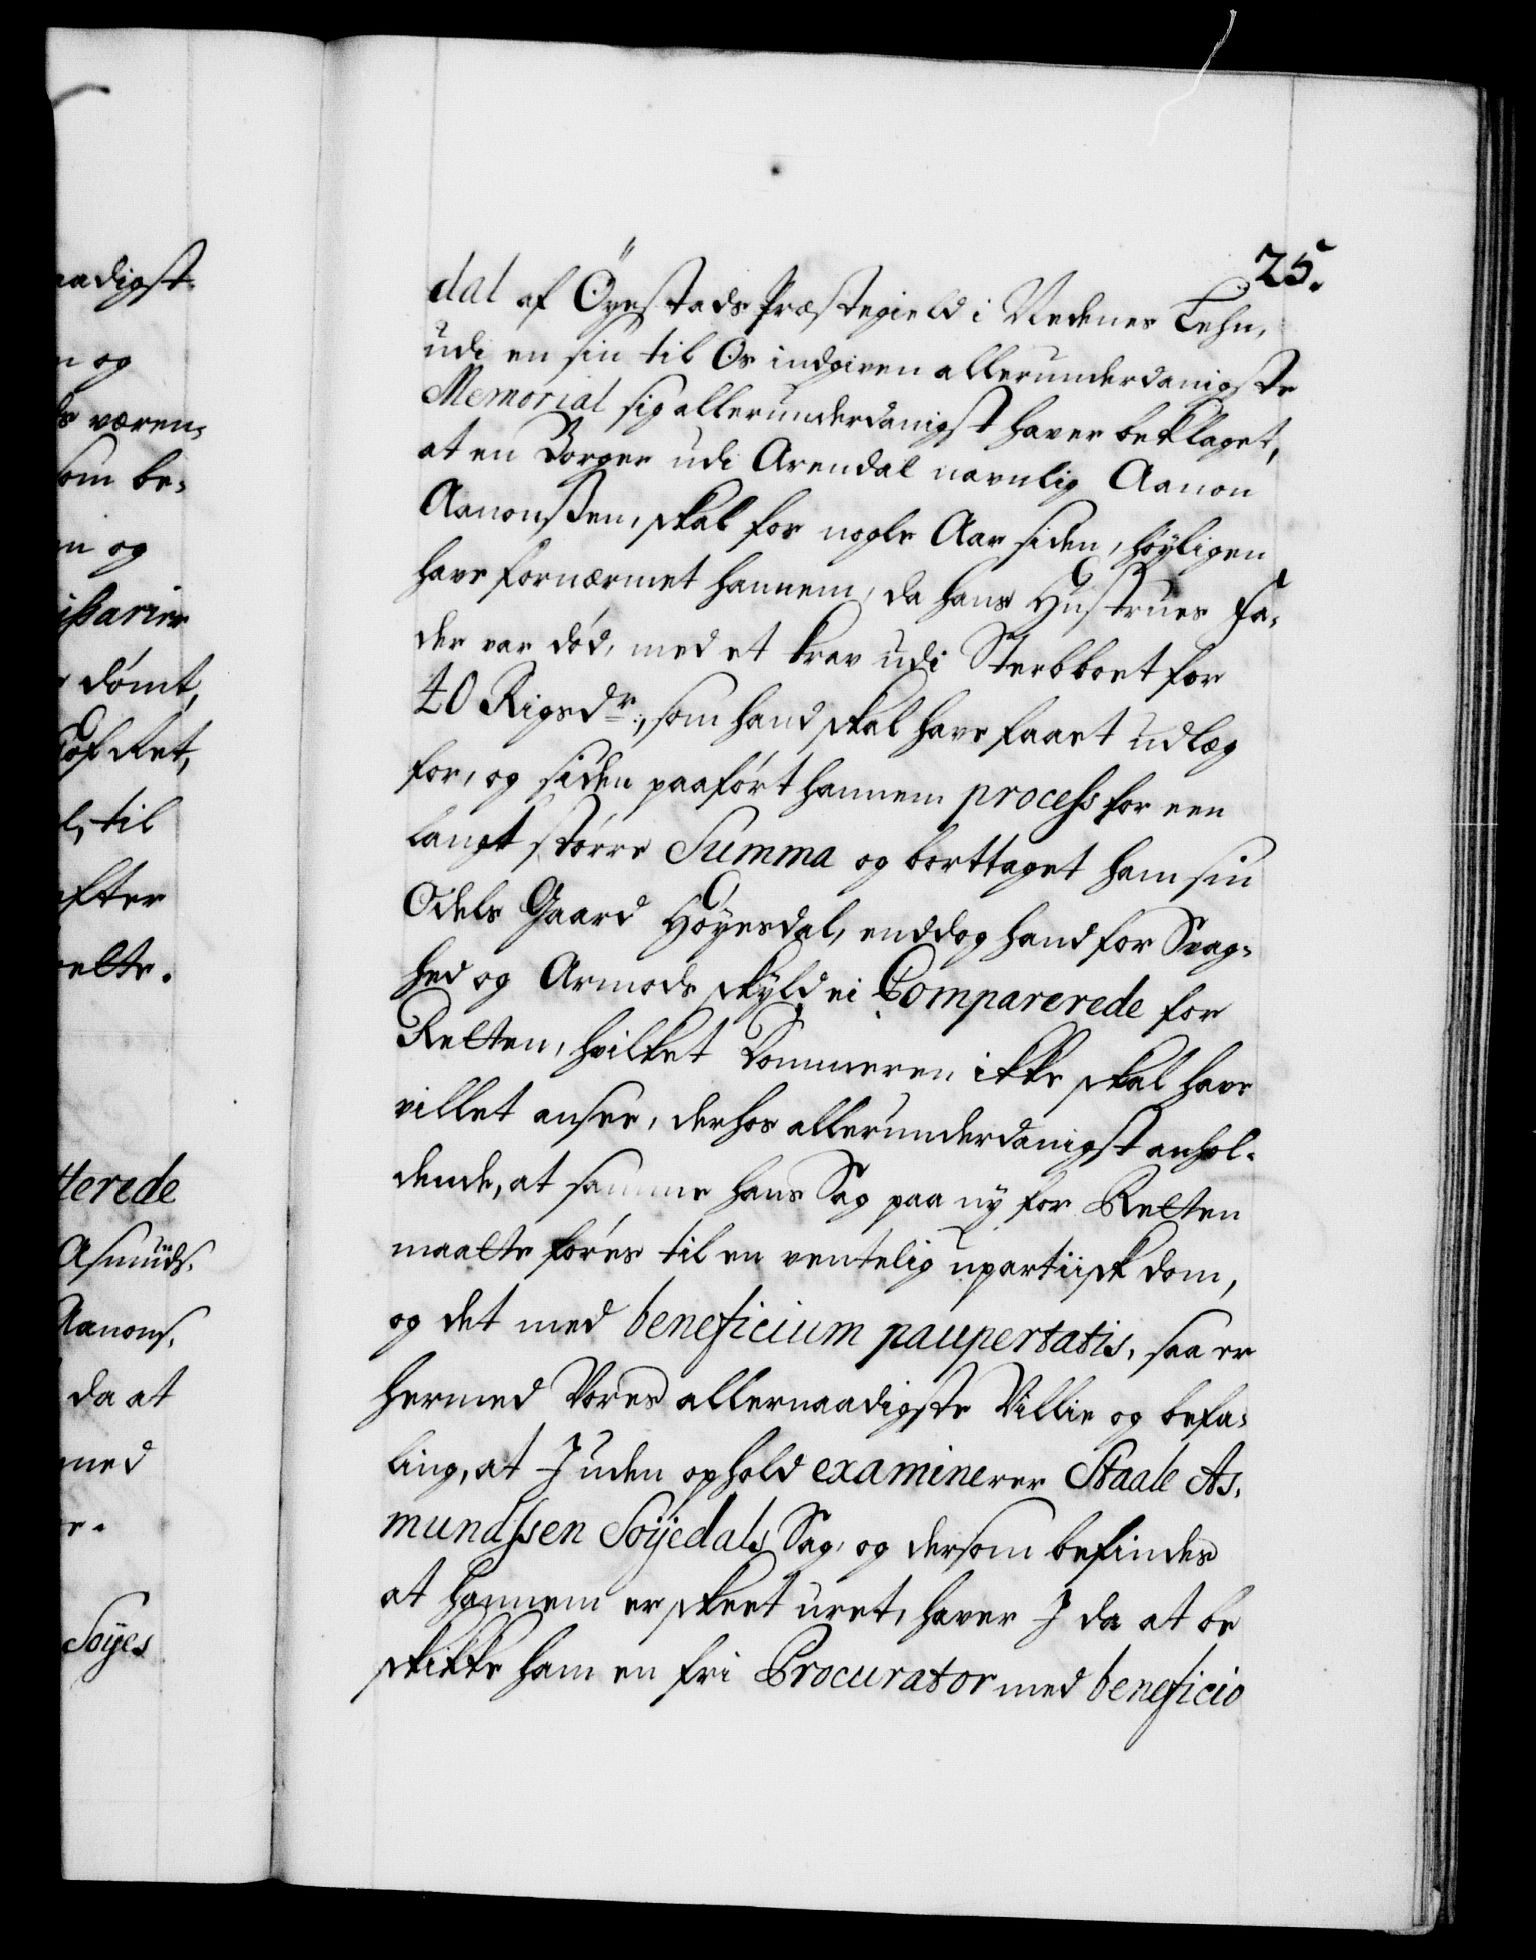 aadigst
n og
ds væren,
som be,
n og
ißarier
dömt,
Hof Ret,
l, til
efter
rette.
tterede
Asmunds.
Aanons.
da at
med
e.
Soÿes
25.
dal af Öyestads Præstegield i Nedenes Lehn,
udi en sin til Os indgiven allerunderdanigste
Memorial sig allerunderdanigst haver beklaget,
at en Borger udi Arendal navnlig Aanon
Aanonßen, skal for nogle Aar siden, höÿligen
have fornærmet hannem, da hans Hustrues Fa,
der var död, med et krav udi Sterbboet for
40 Rigsdr:, som hand skal have faaet udlæg
for, og siden paafört hannem process for een
langt större Summa og borttaget ham sin
Odels Gaard Höyesdal, enddog hand for Svag,
hed og Armods skÿld ei Comparerede for
Retten, hvilket Dommeren ikke skal have
villet ansee, derhos allerunderdanigst anhol,
dende, at samme hans Sag paa ny for Retten
maatte föres til en ventelig upartiisk dom,
og det med beneficium paupertatis, saa er
hermed Vores allernaadigste Villie og befa,
ling, at I uden ophold examinerer Staale As,
mundssen Soÿedals Sag, og dersom befindes
at hannem er skeet uret, haver I da at be
skikke ham en fri Procurator med beneficio